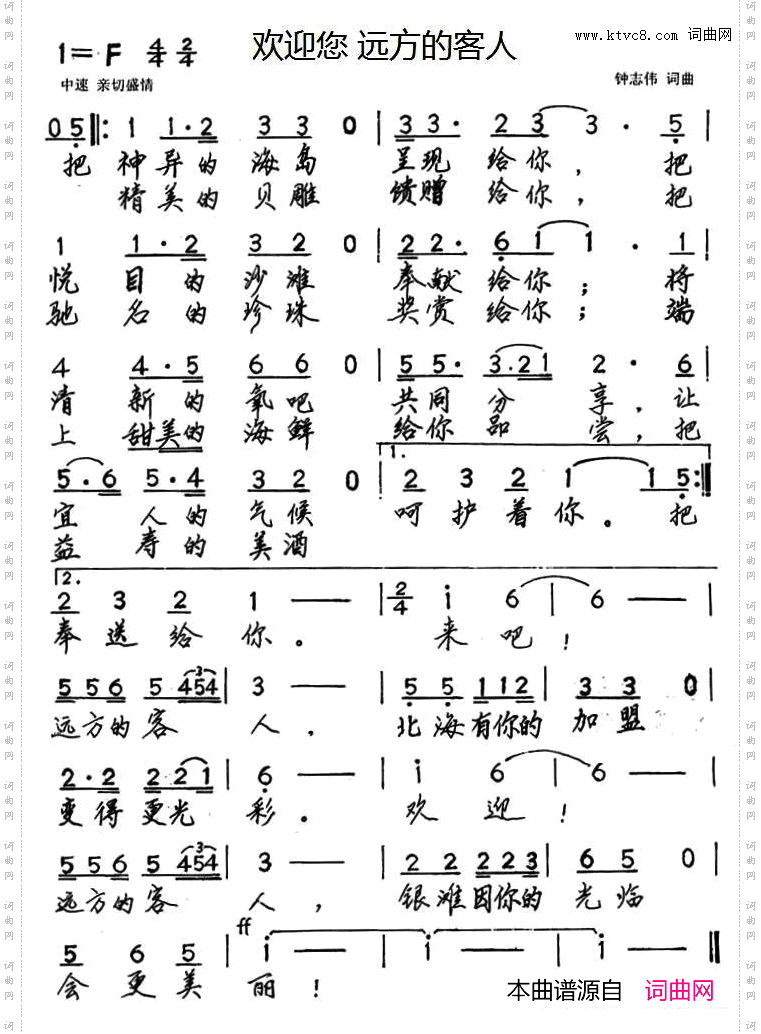 欢迎您 远方的客人
www.ktvc8.com 词曲网
1=F 4/4 2/4
中速 亲切盛情
钟志伟 词曲
0 5 ‖: 1 1·2 3 3 0 | 3 3· 2 3 3· 5 |
把 神异的 海岛 呈现 给你， 把
精美的 贝雕 馈赠 给你， 把
1 1·2 3 2 0 | 2 2· 6 1 1· 1 |
悦 目的 沙滩 奉献 给你； 将
驰 名的 珍珠 奖赏 给你； 端
4 4·5 6 6 0 | 5 5· 3·21 2· 6 |
清 新的 氧吧 共同 分 享， 让
上 甜美的 海鲜 给你 品 尝， 把
1.
5·6 5·4 3 2 0 | 2 3 2 1 1 5 :‖
宜 人的 气候 呵护着你。 把
益 寿的 美酒
2.
2 3 2 1 — — | 2/4 i 6 | 6 — |
奉送给你。 来吧！
5 5 6 5 454 | 3 — | 5 5 1 1 2 | 3 3 0 |
远方的客 人， 北海有你的 加盟
2·2 2 2 1 | 6 — | i 6 | 6 — |
变得更光 彩。 欢 迎！
5 5 6 5 454 | 3 — | 2 2 2 2 3 | 6 5 0 |
远方的客 人， 银滩因你的 光临
ff
5 6 5 | i — | i — | i — ‖
会更美 丽！
本曲谱源自 词曲网